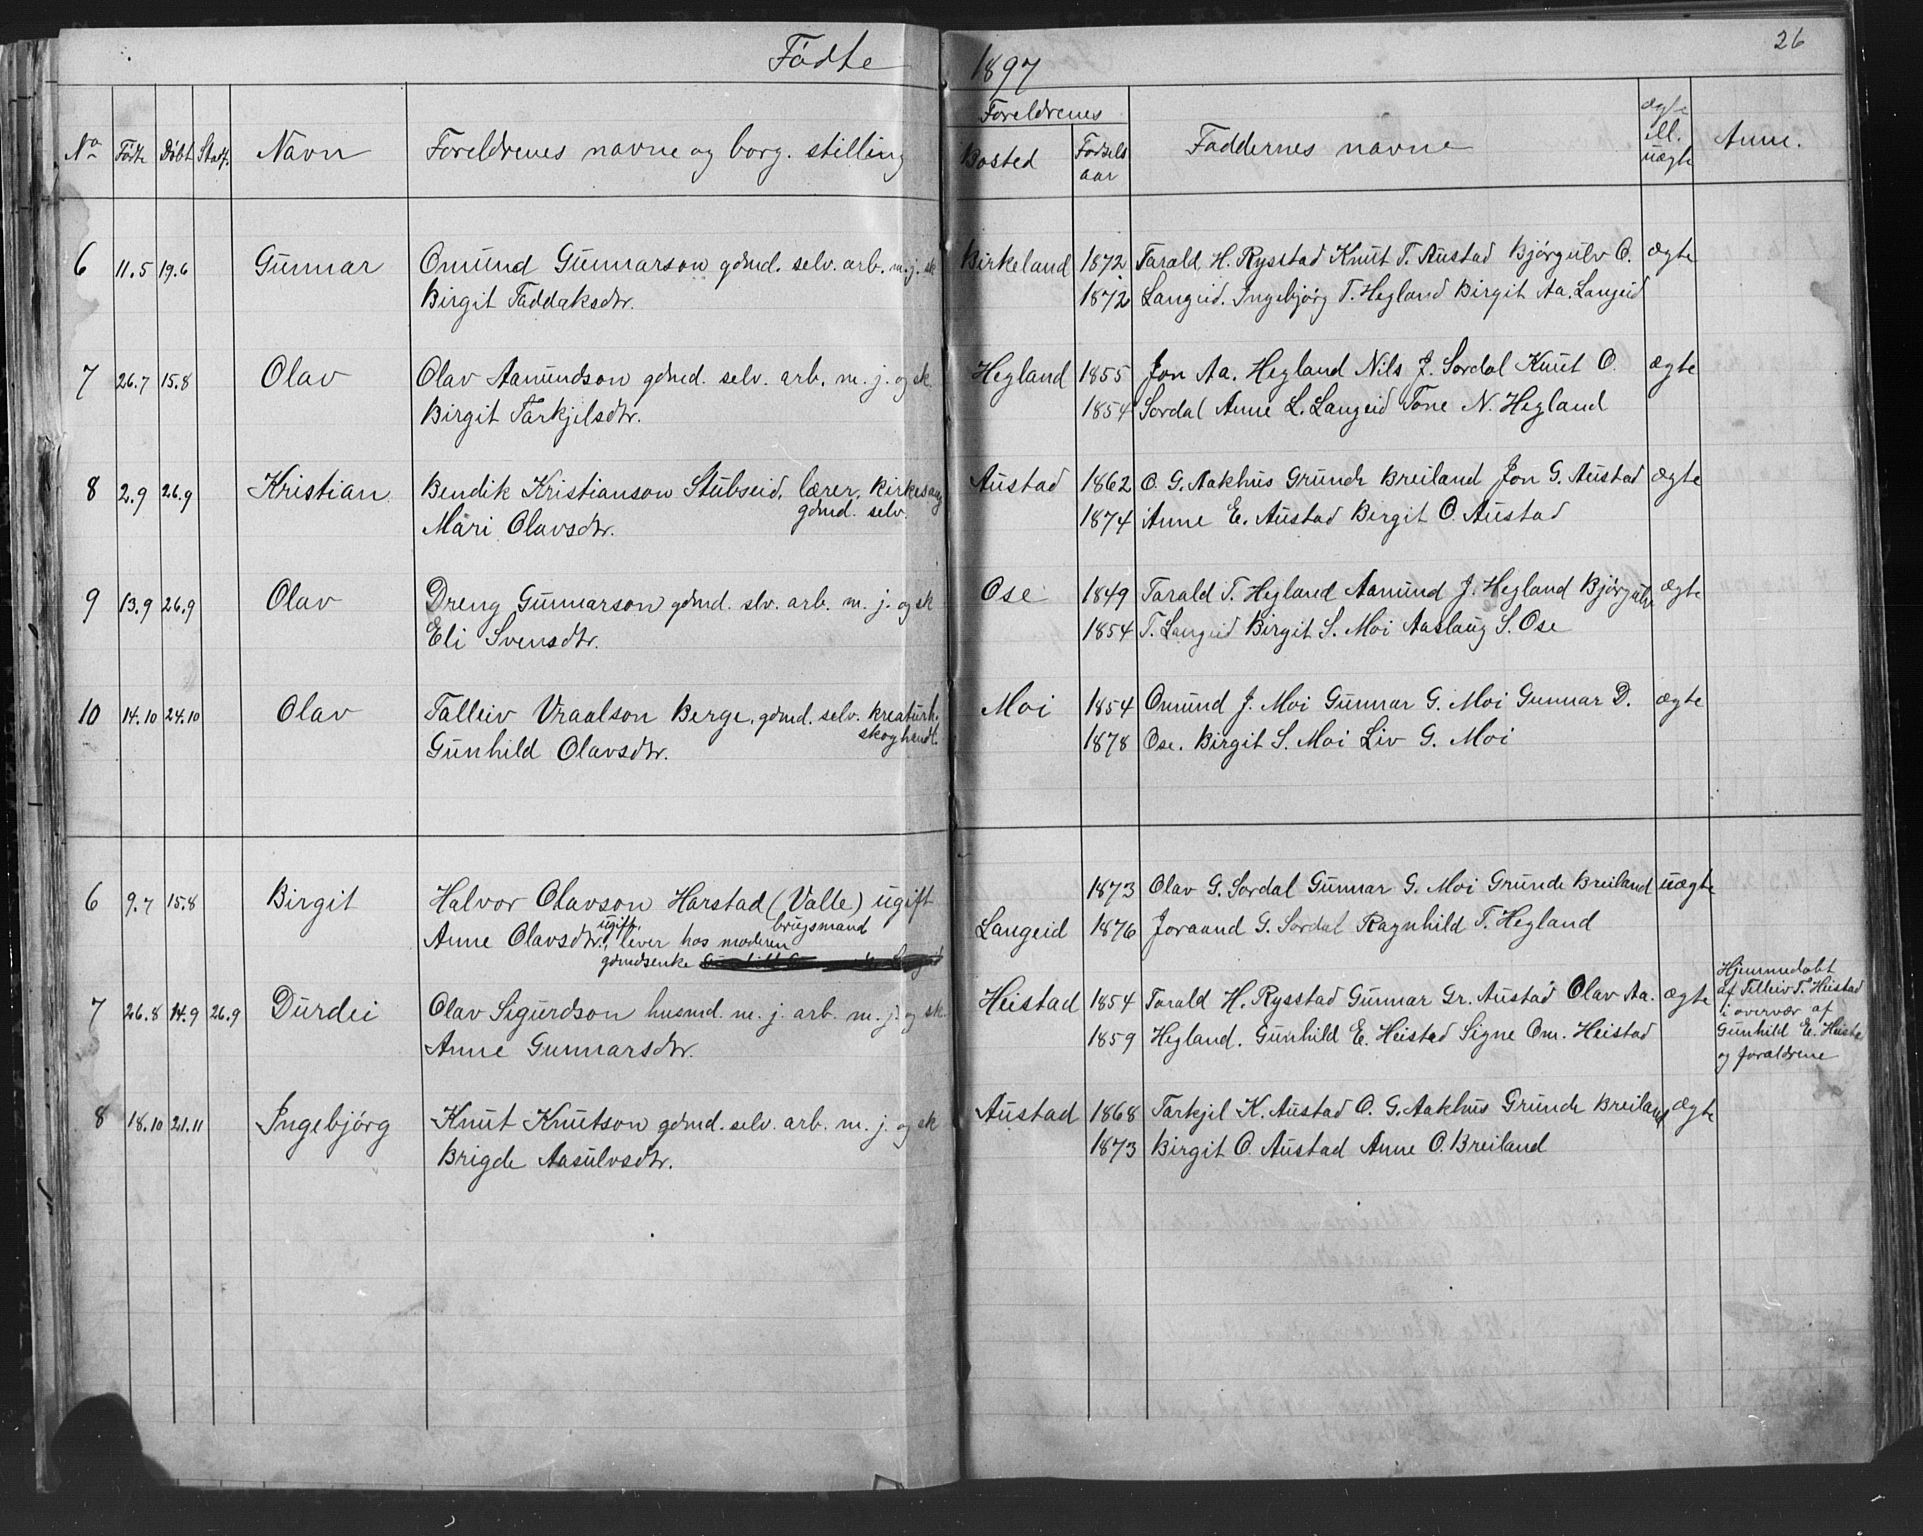 Födte 1897 26
No Födte Döbt Stadf. Navn Foreldrenes navne og borg. stilling Foreldrenes Bosted Födsels aar Faddernes navne ægte ell. uægte Anm.
6 11.5 19.6 Gunnar Omund Gunnarson gdmd. selv. arb. m. j. sk Birkeland 1872 Tarald H. Rysstad Knut T. Austad Björgulv O. ægte
Birgit Taddaksdtr. 1872 Langeid. Ingebjörg T. Hegland Birgit Aa. Langeid
7 26.7 15.8 Olav Olav Aamundson gdmd. selv. arb. m. j. og sk. Hegland 1855 Jon Aa. Hegland Nils J. Sordal Knut O. ægte
Birgit Tarkjelsdtr. 1854 Sordal Anne L. Langeid Tone N. Hegland
8 2.9 26.9 Kristian Bendik Kristianson Stubseid, lærer, kirkesang Austad 1862 O. G. Aakhus Grunde Breiland Jon G. Austad ægte
gdmd. selv.
Märi Olavsdtr. 1874 Anne E. Austad Birgit O. Austad
9 13.9 26.9 Olav Dreng Gunnarson gdmd. slv. arb. m. j. og sk Ose 1849 Tarald T. Hegland Aamund J. Hegland Björgulv ægte
Eli Svensdtr. 1854 T. Langeid Birgit S. Moi Aaslaug S. Ose
10 14.10 24.10 Olav Talleiv Vraalson Berge, gdmd. selv. kreaturh. Moi 1854 Omund J. Moi Gunnar G. Moi Gunnar D. ægte
skoghandl.
Gunhild Olavsdtr. 1878 Ose. Birgit S. Moi Liv G. Moi
6 9.7 15.8 Birgit Halvor Olavson Harstad (Valle) ugift 1873 Olav G. Sordal Gunnar G. Moi Grunde Breiland uægte
ugift, brugsmand
Anne Olavsdtr. lever hos moderen Langeid 1876 Joraand G. Sordal Ragnhild T. Hegland
gdmdsenke
7 26.8 14.9 26.9 Durdei Olav Sigurdson husmd. m. j. arb. m. j. og sk. Heistad 1854 Tarald H. Rysstad Gunnar Gr. Austad Olav Aa. ægte
Anne Gunnarsdtr. 1859 Hegland. Gunhild E. Heistad Signe Om. Heistad
Hjemmedöbt
af Tilleiv T. Heistad
i overvær af
Gunhild E. Heistad
og foraldrene
8 18.10 21.11 Ingebjörg Knut Knutson gdmd. selv. arb. m. j. og sk Austad 1868 Tarkjil K. Austad O. G. Aakhus Grunde Breiland ægte
Brigde Aasulvsdtr. 1873 Birgit O. Austad Anne O. Breiland